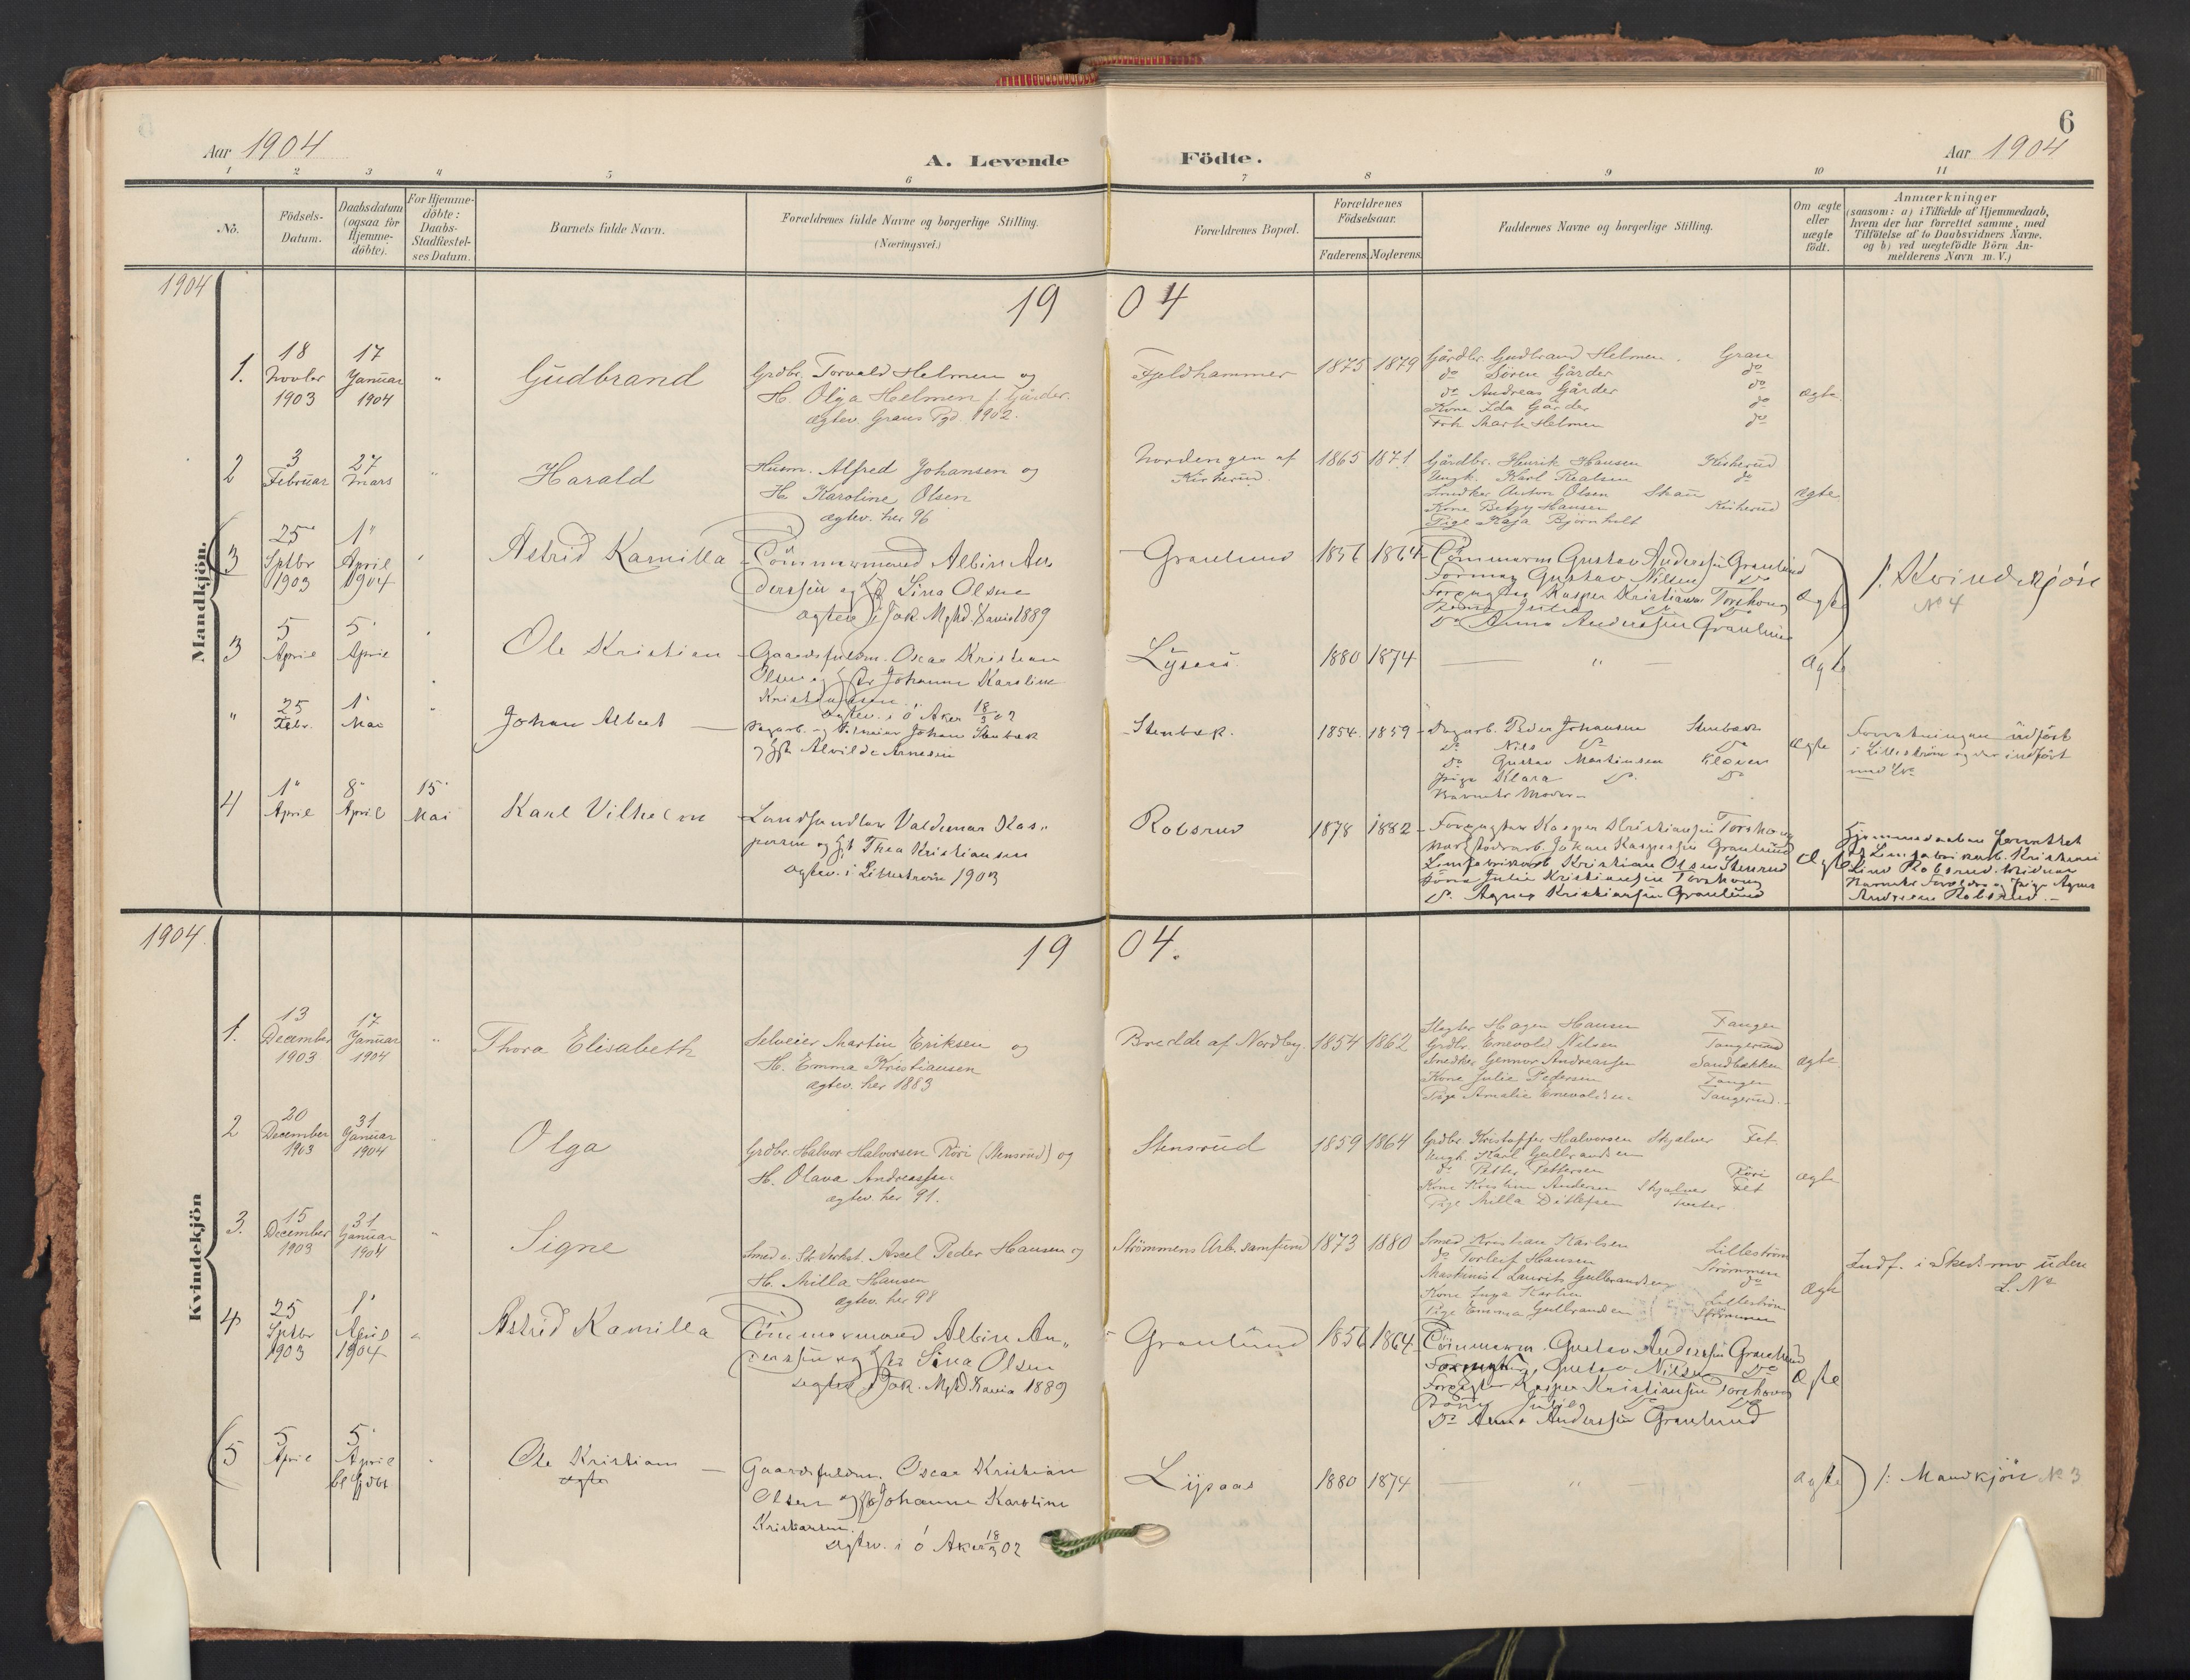 6
Aar 1904
A. Levende Födte.
Aar 1904
1 2 3 4 5 6 7 8 9 10 11
No.
Födsels-Datum.
Daabsdatum (ogsaa for Hjemme-döbte).
For Hjemme-döbte: Daabs-Stadfæstel-ses Datum.
Barnets fulde Navn.
Forældrenes fulde Navne og borgerlige Stilling.
(Næringsvei.)
Forældrenes Bopæl.
Forældrenes Födselsaar.
Faderens. Moderens.
Faddernes Navne og borgerlige Stilling.
Om ægte eller uægte födt.
Anmærkninger
(saasom: a) i Tilfælde af Hjemmedaab,
hvem der har forrettet samme, med
Tilföielse af to Daabsvidners Navne,
og b) ved uægtefödte Börn An-
melderens Navn m. V.)
1904
19 04
Mandkjön.
1. 18 Novbr 1903 17 Januar 1904 " Gudbrand
Grdbr. Torvald Helmen og
H. Olga Helmen f. Gårder.
ægtev. Grans Pgd. 1902.
Fjeldhammer 1875 1879
Gårdbr. Gudbrand Helmen. Gran
do Sören Gårder do
do Andreas Gårder do
Kone Ida Gårder do
Helmen do
ægte
2 3 Februar 27 Mars " Harald
Husm. Alfred Johansen og
H. Karoline Olsen
ægtev. her 96
Nordengen af
Kirkerud.
1865 1871
Gårdbr. Henrik Hansen Kirkerud
Ungk. Karl do
Snedker Anton Olsen
Kone Betzy Hansen Kirkerud
Pige Kaja Björnholt
ægte
3 25 Sptbr 1903 1" April 1904 Astrid Kamilla
Tömmermand Albin An
derssen og H. Lina Olsen
ægtev. i Jak. Mghd. Xania 1889
Granlund 1856 1864
Tömmerm Gustav Anderssen Granlund
Formay Gustav Nilsen do
Forpagter Kasper Kristiansen Torshoug
Kone Julie do do
do Anna Anderssen Granlund
Ægte
/: Kvindekjön
No 4
3 5 April 5' April Ole Kristian
Gaardsfuldm. Oscar Kristian
Olsen og H. Johanne Karoline
Kristiansen
ægtev. i Ö Aker 18/3 02
Lysaas 1880 1874 — " —
ægte
" 25 Febr. 1" Mai " Johan Albert —
Dagarb. og Johan Stenbæk
og H. Alvilde Arnesen
Stenbæk. 1854. 1859
Dagarb. Peder Johansen Stenbæk
do Nils do do
do Gustav Martinsen Kløven
Pige Klara do do
Barnets Moder
ægte
Forretningen udfört
i Lilleström og der indfört
med No
4 1" April 8" April 15' Mai Karl Vilhelm
Landhandler Valdemar Kas-
persen og H. Thea Kristiansen
ægtev. i Lilleström 1903
Robsrud 1878 1882
Forpagter Kasper Kristiansen Torshoug
Johan Kaspersen Granlund
Limfabrikarb Kristian Olsen Stensrud
Kone Julie Kristiansen Torshoug
do. Agnes Kristiansen Granlund
Ægte
Hjemmedaaben forrettet
af Limfabrikarb. Kristian
Lind Robsrud. Vidner
Barnets Forældre og Pige Agnes
Andersen Robsrud.
1904.
19 04.
Kvindekjön
1. 13 December 1903 17 Januar 1904 " Thora Elisabeth
Selveier Martin Eriksen og
H. Emma Kristiansen
ægtev. her 1883
Bredde af Nordby 1854 1862
Slagter Hagen Hansen Tangen
Grdbr. Enevold Nilsen Tangerud
Snedker Gunnar Andreassen Sandbækken
Kone Julie Pedersen Tangen
Pige Amalie Enevoldsen Tangerud.
ægte
2 20 December 1903 31 Januar 1904 Olga
Grdbr. Halvor Halvorsen Röri (Stensrud) og
H. Olava Andreassen
ægtev. her 91.
Stensrud 1859 1864
Grdbr. Kristoffer Halvorsen Skjalver Fet
Ungk. Karl Gulbrandsen
do Petter Pettersen Röri
Kone Kristine Andersen Skjalver Fet
Pige Milla Ditlefsen
ægte
3. 15 December 1903 31 Januar 1904 " Signe
Smed v. Str. Verkst. Axel Peder Hansen og
H. Milla Hansen
ægtev. her 98
Strömmens Arb. samfund 1873 1880
Smed Kristian Karlsen Lilleström
do Torleif Hansen Strömmen
Maskinist Laurits Gulbrandsen do
Kone Inga Karlsen Lilleström
Pige Emma Gulbrandsen Strömmen
ægte
Indf. i Skedsmo uden
L. No
4 25 Sptbr 1903 1' April 1904 " Astrid Kamilla
Tömmermand Albin An„
derssen og H. Lina Olsen
ægtev. i Jak. Mghd. Xania 1889
Granlund 1856 1864
Tömmerm. Gustav Anderssen Granlund
Gustav Nilsen do
Forpagter Kasper Kristiansen Torshoug
Kone Julie do do
do Anna Anderssen Granlund
Ægte
5 5 April 5' April bl Hjdbt Ole Kristian —
ægte
Gaardsfuldm. Oscar Kristian
Olsen og H. Johanne Karoline
Kristiansen.
ægtev. i Ö Aker 18/3 02
Lysaas 1880 1874 — " —
ægte
/: Mandkjön No 3